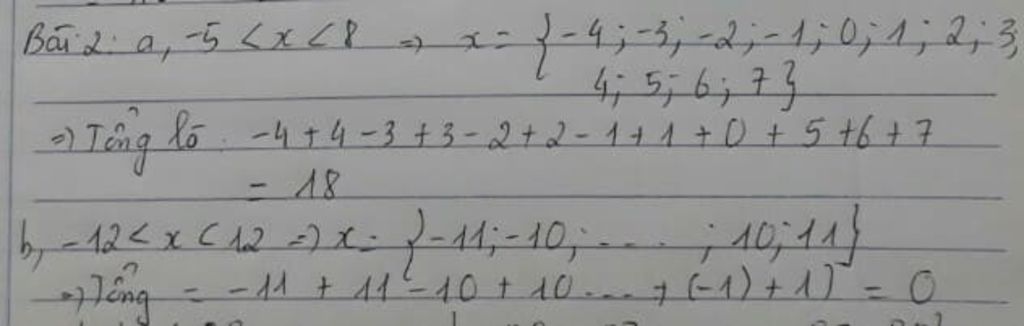 Bài 2: a, -5 < x < 8 => x = {-4; -3; -2; -1; 0; 1; 2; 3;
4; 5; 6; 7}
=> Tổng là -4 + 4 - 3 + 3 - 2 + 2 - 1 + 1 + 0 + 5 + 6 + 7
= 18
b, -12 < x < 12 => x = {-11; -10; ....; 10; 11}
=> Tổng = -11 + 11 - 10 + 10 .... + (-1) + 1] = 0